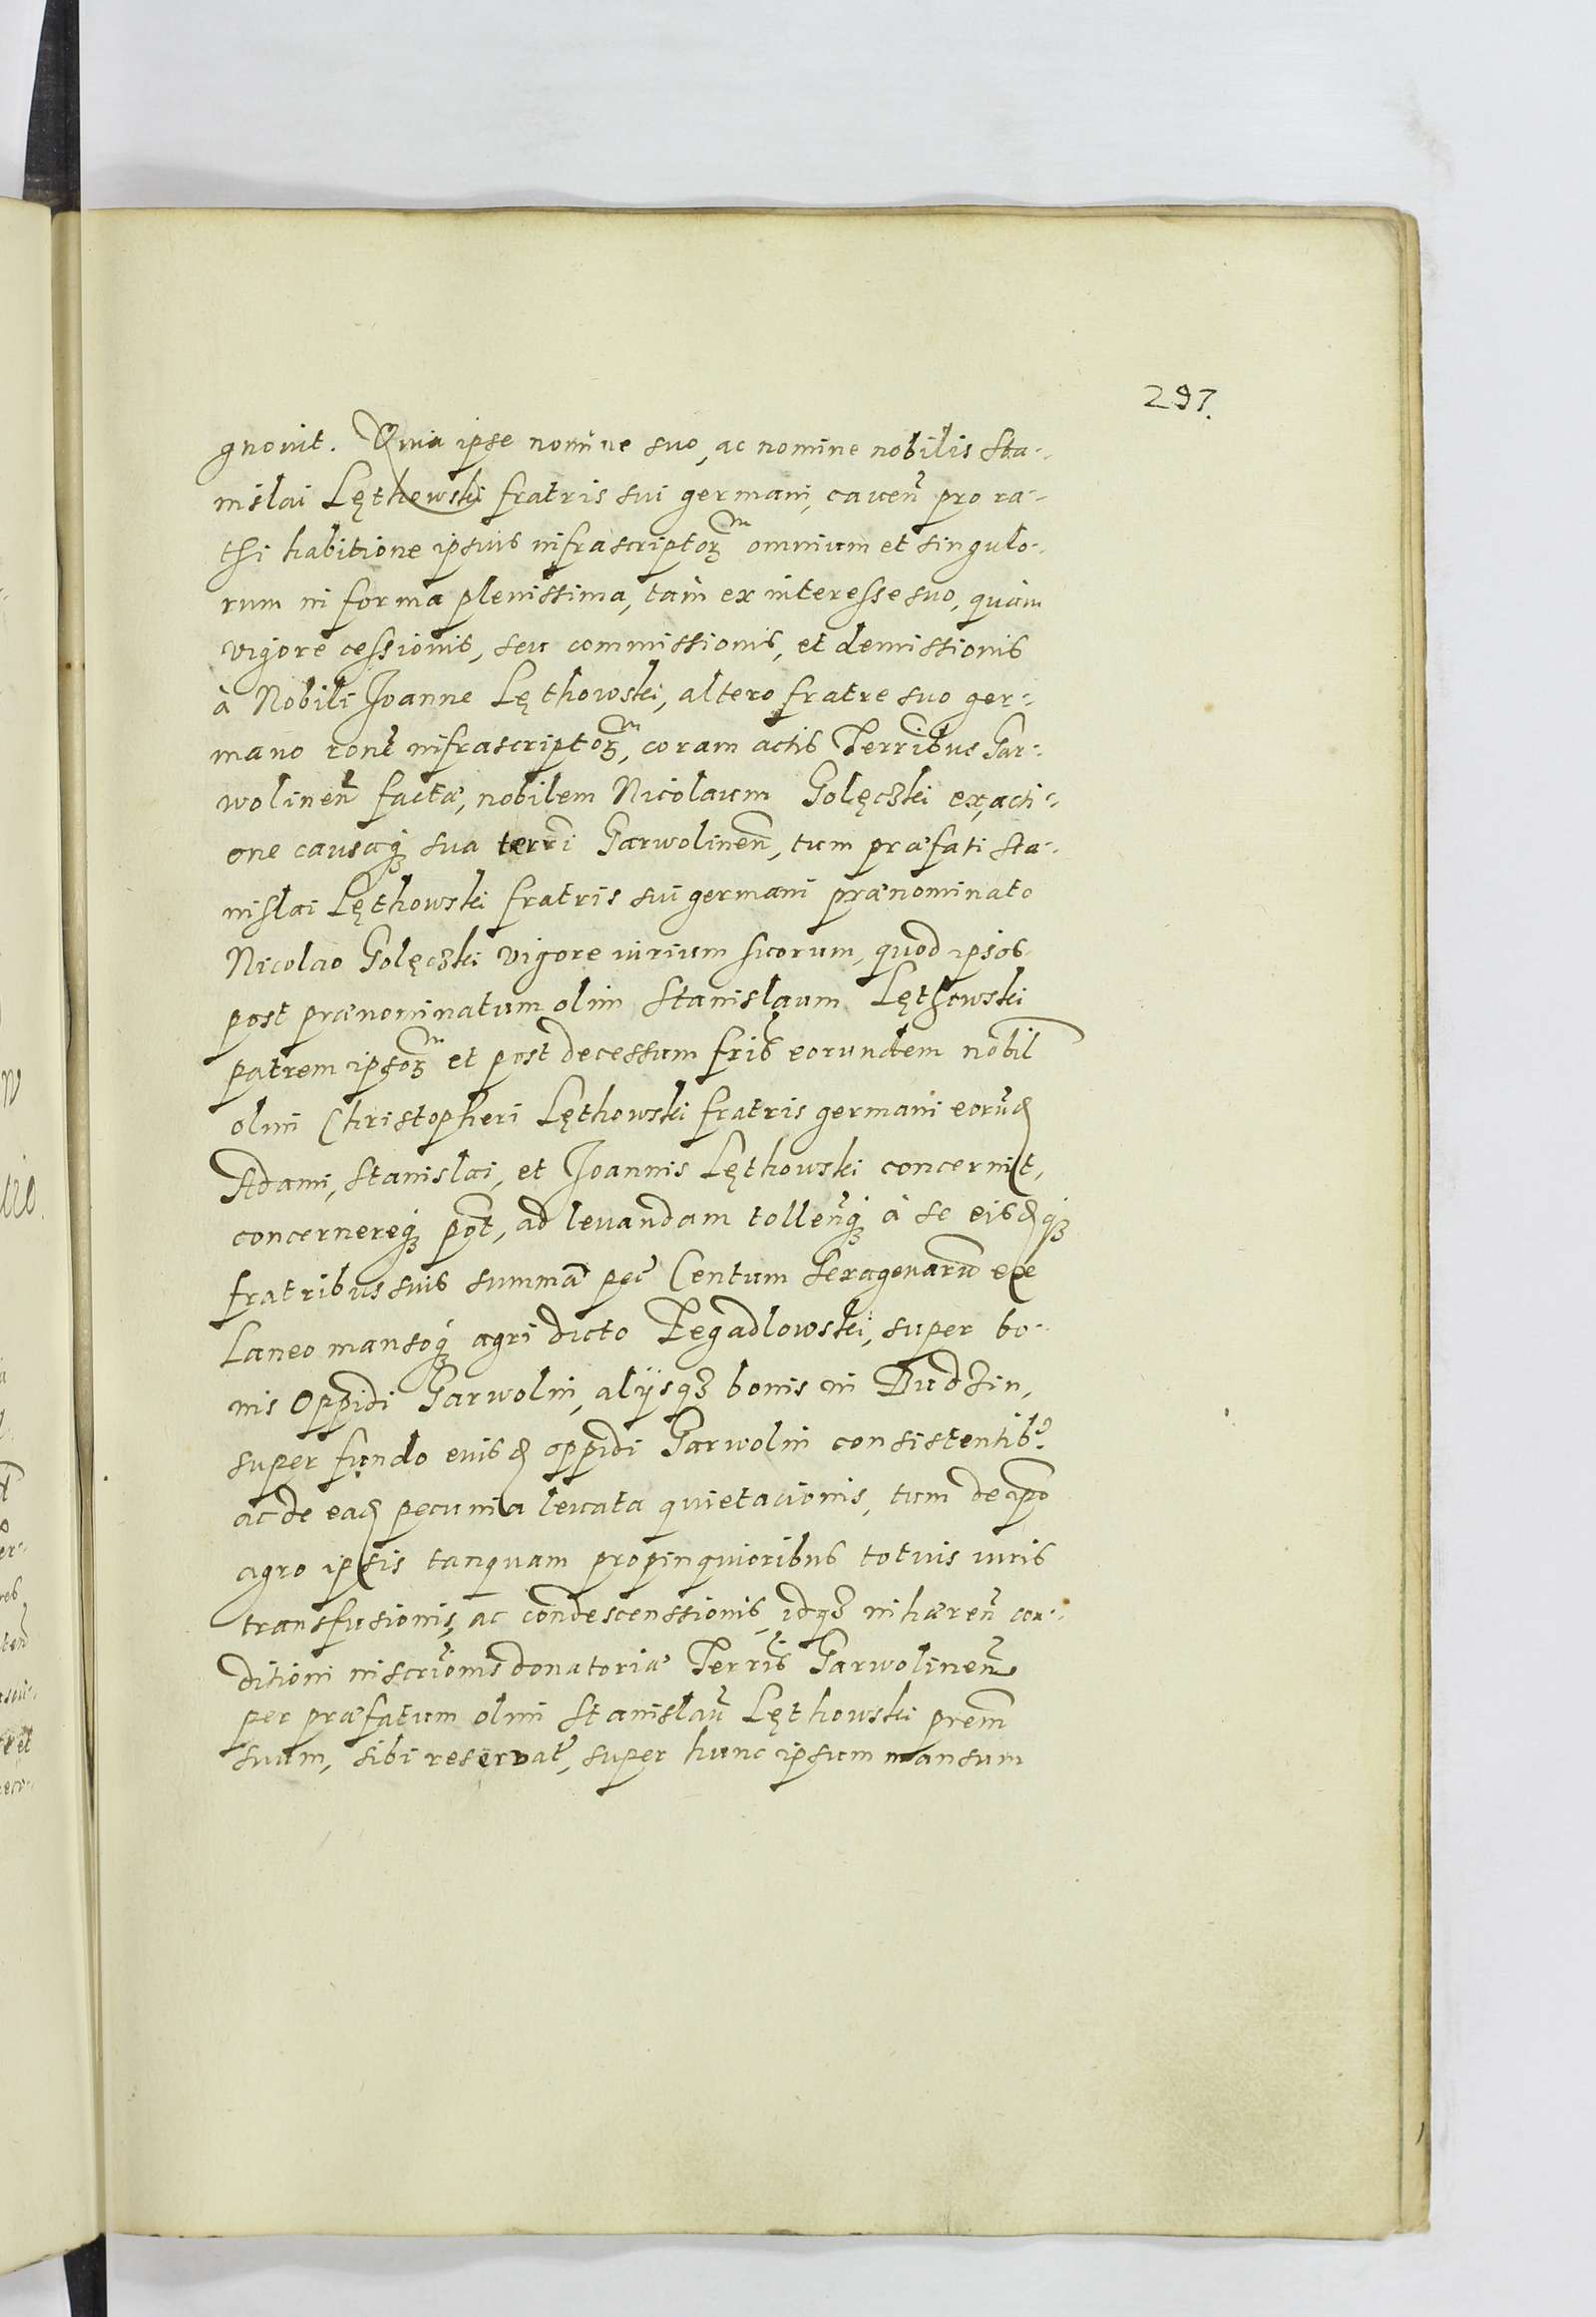 297.
gnovit. Quia ipse nomine suo, ac nomine nobilis Sta-
nislai Lęthowski fratris sui germani, caven̄ pro ra-
thi habitione ipsius infrascriptoꝝm omnium et singulo-
rum in forma plenissima, tam ex interesse suo, quàm
vigore cessionis, seu commissionis, et demissionis
à Nobili Joanne Lęthowski, altero fratre suo ger-
mano ronē infrascriptoꝝm, coram actis Terribus Gar-
wolinen̄ factæ, nobilem Nicolaum Golęczki ex, acti-
one causaq₃ sua terri Garwolinen̄, tum præfati Sta-
nislai Lęthowski fratris sui germani prænominato
Nicolao Golęczki vigore iurium suorum, quod ipsos
post prænominatum olim Stanislaum Lęthowski
patrem ipsoꝝm et post decessum fris eorundem nobil
olim Christopheri Lęthowski fratris germani eorūd
Adami, Stanislai, et Joannis Lęthowski concernit,
concernereq₃ pot, ad levandam tollen̄q₃ à se eisdq₃
fratribus suis summā pec̄ Centum Sexagenarū exe
Laneo mansoq₃ agri dicto Zegadlowski, super bo-
nis Oppidi Garwolin, alijsq₃ bonis in Budzin,
super fundo eiusd oppidi Garwolin consistentib9.
ac de ead pecunia levata quietacionis, tum de ipo
agro ipsis tanquam propinquioribus totius iuris
transfusionis, ac condescenssionis, idq₃ inhæren̄ con-
ditioni inscriōnis donatoriæ Terris Garwolinen̄
per præfatum olim Stanislaū Lęthowski prem
suum, sibi reservat̄, super hunc ipsum mansum